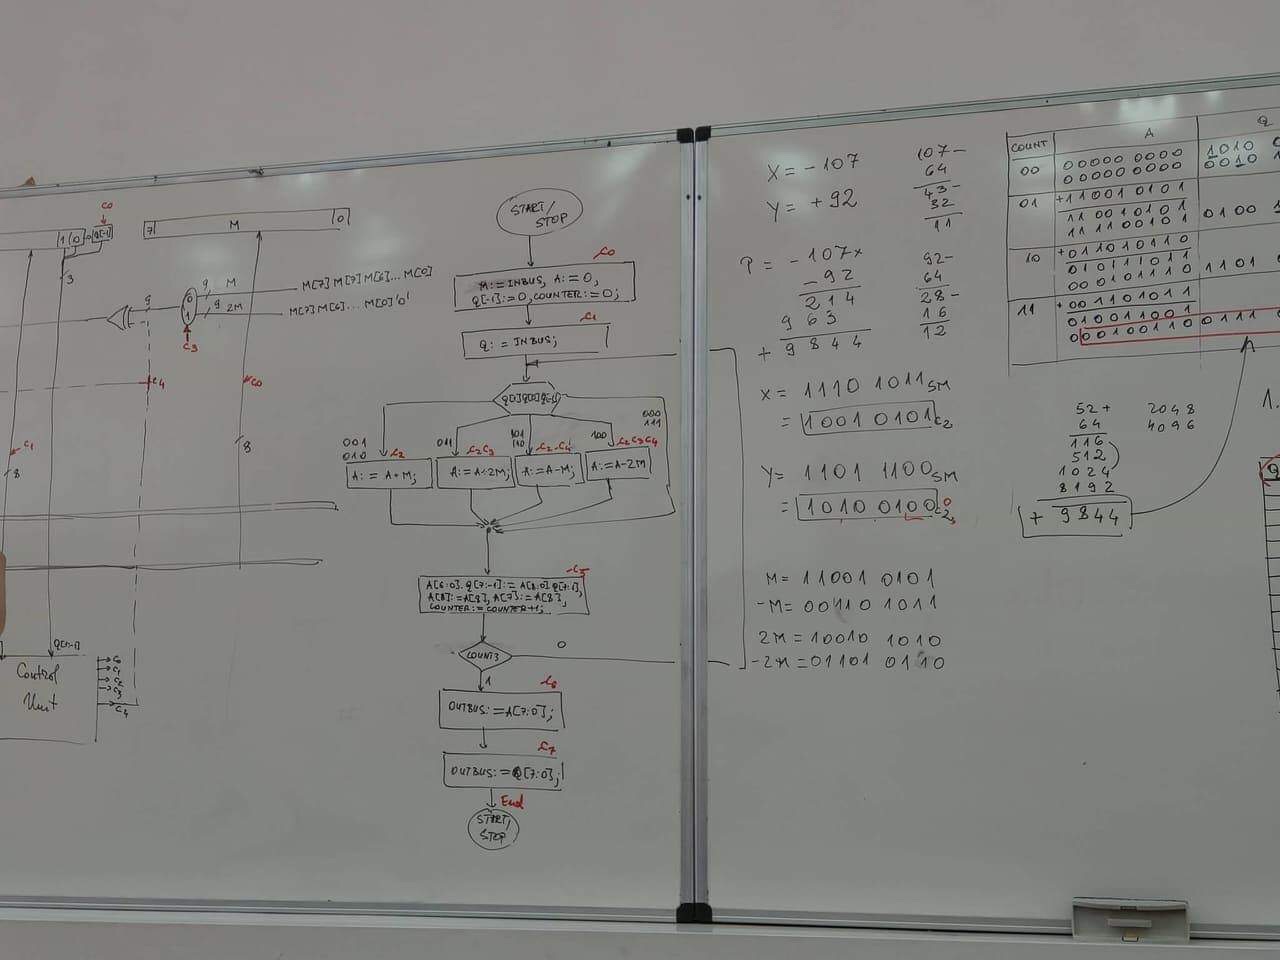 C0
7 M 0
1 0 Q[-1]
3
9 M
M[7]M[7]M[6]...M[0]
9 2M
M[7]M[6]...M[0]'0'
0
1
9
C3
C4
C0
C1
8
8
Q[1:-1]
Control
Unit
C0
C1
C2
C3
C4
START/
STOP
C0
M:=INBUS, A:=0,
Q[-1]:=0, COUNTER:=0;
C1
Q:=INBUS;
Q[1]Q[0]Q[-1]
001
010
C2
A:=A+M;
011
C2C3
A:=A+2M;
101
110
C2 C4
A:=A-M;
100
C2C3C4
A:=A-2M
000
111
C5
A[6:0].Q[7:-1]:=A[8:0].Q[7:1],
A[8]:=A[8], A[7]:=A[8],
COUNTER:=COUNTER+1;
COUNT3
0
1
C6
OUTBUS:=A[7:0];
C7
OUTBUS:=Q[7:0];
End
START/
STOP
X = -107
Y = +92
107-
64
43-
32
11
P = -107x
-92
214
963
+9844
92-
64
28-
16
12
X = 1110 1011SM
= 1001 0101C2
Y = 1101 1100SM
= 1010 0100C2
0
M = 11001 0101
-M = 00110 1011
2M = 10010 1010
-2M = 01101 0110
COUNT A Q
00 00000 0000 1010 0
00000 0000 0010 1
01 +11001 0101
11001 0101
11110 0101 0100 1
10 +01101 0110
01011 1011
00010 1110 1101
11 +00110 1011
01001 1001
00010 0110 0111
52+
64
116
512
1024
8192
+9844
2048
4096
1.